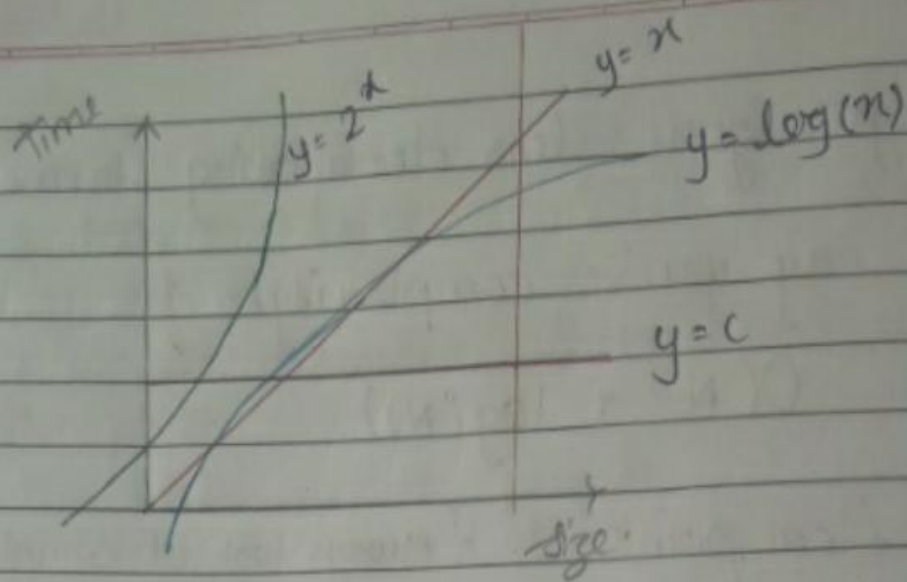 y = x
Time
y = 2^x
y = log(x)
y = c
size.